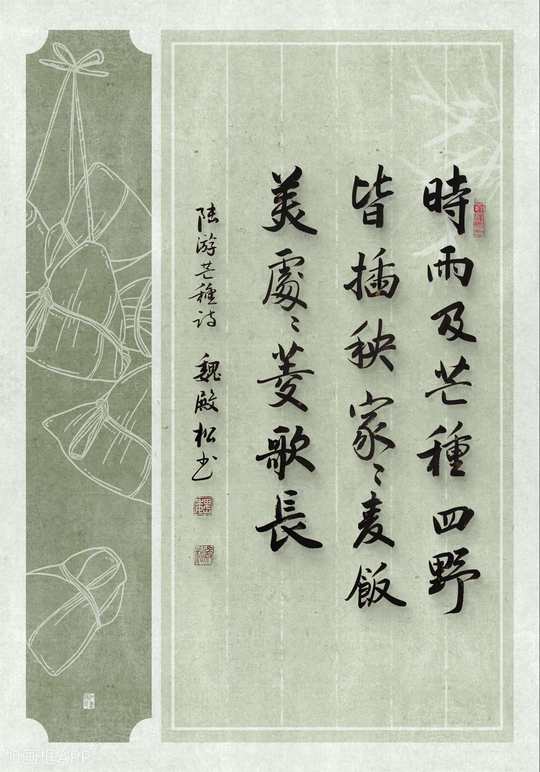 時雨及芒種四野
皆插秧家〻麦飯
美處〻菱歌長
陆游芒種诗 魏殿松书